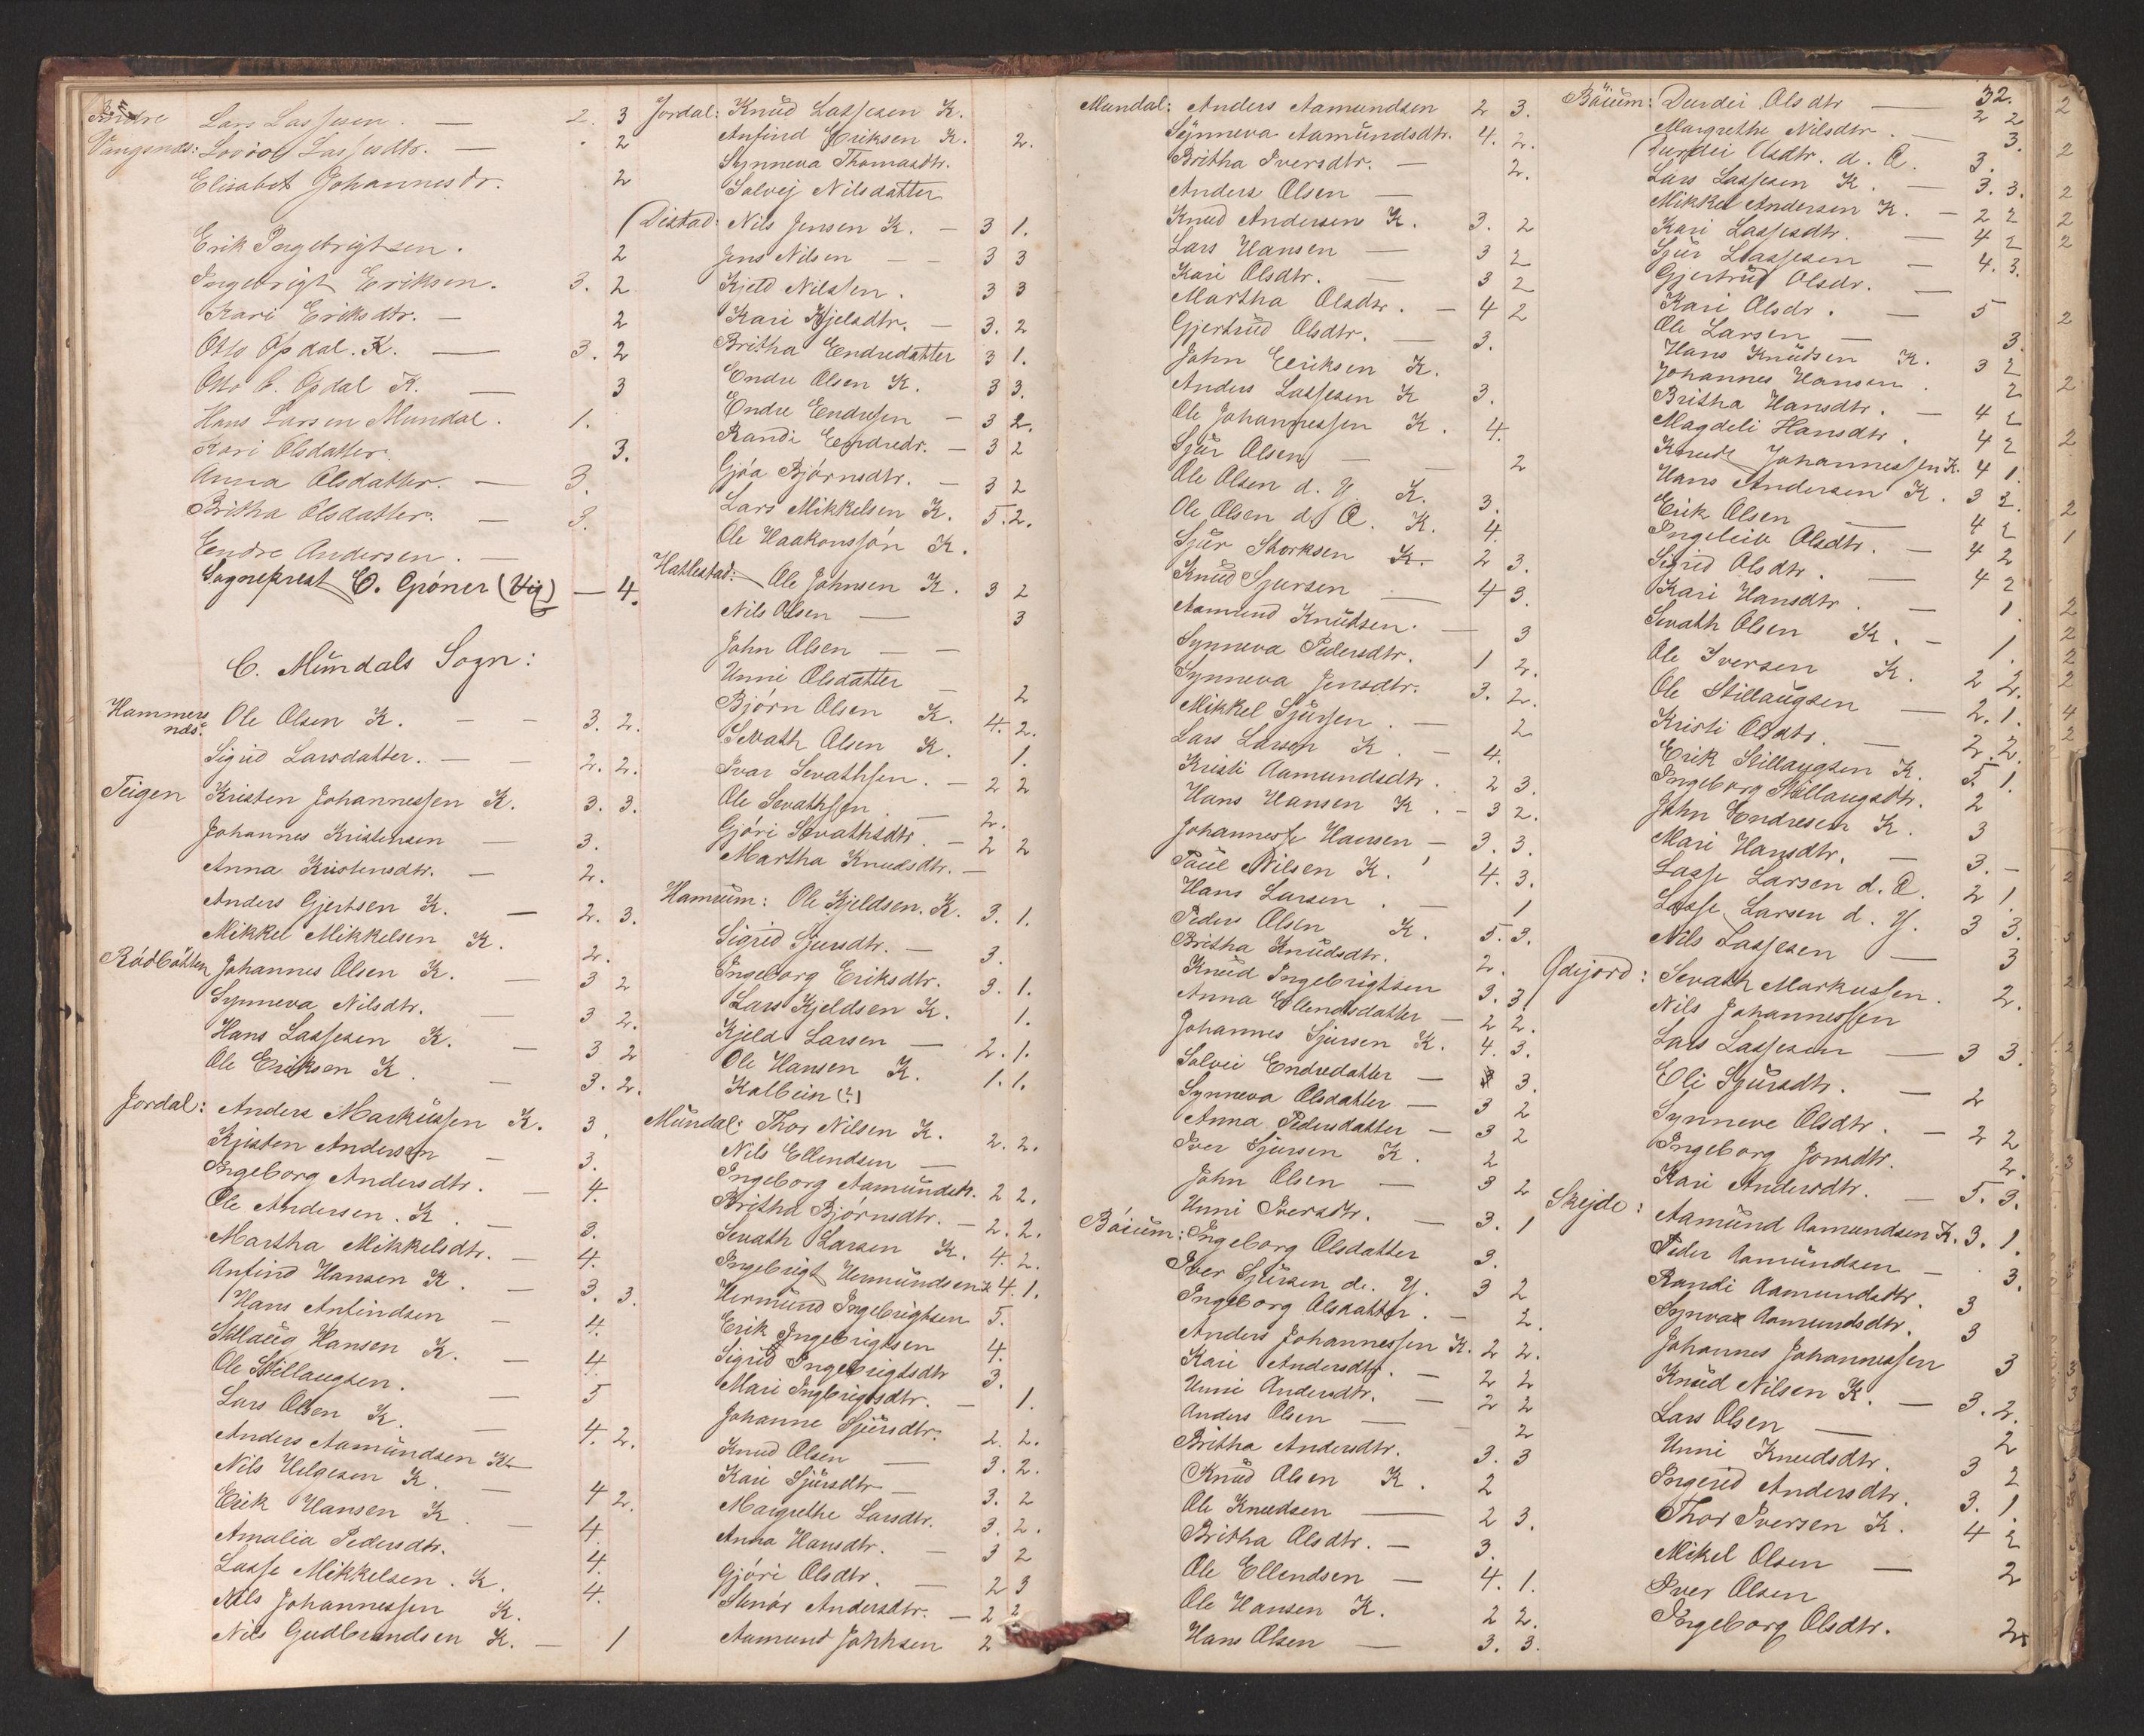 Lars Lassesen. — 2. 3
Vangsnds: Lassesdtr. — 2
Elisabet Johannesdr. 2
Erik Ingebrigtsen. 2
Ingebrigt Eriksen. 3. 2
Kari Eriksdtr. — 2
Otto Opdal. K. — 3. 2
Otto Opdal K. — 3
Hans Larsen Mundal. 1.
Kari Olsdatter. 3.
Anna Olsdatter. — 3.
Britha Olsdatter. — 3.
Endre Andersen. —
Sogneprest C. Grøner (Vig) — 4.
C. Mündals Sogn:
Hammers
nds: Ole Olsen K. — — 3. 2.
Sigrid Larsdatter. — — 2. 2.
Teigen Kristen Johannessen K. 3. 3.
Johannes Kristensen — 3.
Anna Kristensdtr. — 2.
Anders Gjertsen K. — 2. 3.
Mikkel Mikkelsen K. 2.
Rødbotten Johannes Olsen K. — 3 2
Synneva Nilsdtr. — 3 2.
Hans Lassesen K. — 3 2
Ole Eriksen K. — 3. 2.
Jordal: Anders Markussen K. 3.
Kristen Andersen — 3.
Ingeborg Andersdtr. — 4.
Ole Andersen. K. — 3.
Martha Mikkelsdtr. — 4.
Anfind Hansen K. — 3. 3.
Hans Anfindsen — 4.
Stillaug Hansen K. — 4.
Ole Stillaugsen. — 5
Lars Olsen K. — 4. 2.
Anders Aamundsen K.
Nils Helgesen K. — 4 2.
Erik Hansen K. — 4.
Amalia Pedersdtr. 4.
Lasse Mikkelsen. K. 4.
Nils Johannessen K.
Nils Gudbrandsen K. — 1
Jordal: Knud Lassesen K.
Anfind Eriksen K. 2.
Synneva Thomasdtr.
Solvej Nilsdatter
Distad: Nils Jensen K. — 3 1.
Jens Nilsen — — 3 3
Kjeld Nilssen. 3 3
Kari Kjelsdtr. — 3. 2
Britha Endredatter 3 1.
Endre Olsen K. 3 3.
Endre Endresen — 3 2.
Randi Endredr. — 3 2
Gjøa Bjørnsdtr. — 3 2
Lars Mikkelsen K. 5. 2.
Ole Haakonssøn K.
Hatlestad: Ole Johnsen K. 3 2
Nils Olsen — 3
John Olsen — —
Unni Olsdatter — 2
Bjørn Olsen K. 4. 2.
Sevath Olsen K. 1.
Ivar Sevathsen. — 2 2
Ole Sevathsen — 2.
Gjøri Sevathsdtr. — 2 2
Martha Knudsdtr. —
Hamrum: Ole Kjeldsen. K. 3. 1.
Sigrid Sjursdtr. — 3.
Ingeborg Eriksdtr. 3. 1.
Lars Kjeldsen K. 1.
Kjeld Larsen — 2. 1.
Ole Hansen K. 1. 1.
Kolbein (?)
Mundal: Thor Nilsen K. 2. 2.
Nils Ellendsen —
Ingeborg Aamundsdtr. 2 2.
Britha Bjørnsdtr. — 2. 2.
Sevath Larsen K. 4. 2.
Ingebrigt Hermundsen K 4. 1.
Hermund Ingebrigtsen 5.
Erik Ingebrigtsen 4.
Sigrid Ingebrigtsdtr 3.
Mari Ingbrigtsdtr. — 1.
Johanne Sjursdtr. 2. 2.
Knud Olsen — 3. 2.
Kari Sjursdtr — 3. 2
Margrethe Larsdtr. 3. 2.
Anna Hansdtr. — 3 2
Gjøri Olsdtr. — 2 3
Stenør Andersdtr. — 2 2
Aamund Johnsen 2
Mundal: Anders Aamundsen 2 3.
Synneva Aamundsdtr. 4. 2.
Britha Iversdtr. — 2.
Anders Olsen —
Knud Andersen K. 3. 2
Lars Hansen — 3 2
Kari Olsdtr. — 3 2
Martha Olsdtr. — 4 2
Gjertrud Olsdtr. — 3.
John Eriksen K.
Anders Lassesen K 3.
Ole Johannessen K. 4.
Sjur Olsen — — 2
Ole Olsen d. Y. K. 3.
Ole Olsen d. Æ. K. 4.
Sjur Storksen K. 2 3.
Knud Sjursen — 4 3.
Aamund Knudsen. — 3
Synneva Pedersdtr. 1 2.
Synneva Jensdtr. 3. 2.
Mikkel Sjursen. — 2
Lars Larsen K. — 4.
Kristi Aamundsdtr. 2 3.
Hans Hansen K. — 3 2.
Johannes Hansen — 3. 3.
Paul Nilsen K. 4. 3.
Hans Larsen. — 1
Peder Olsen K. 5. 3.
Britha Knudsdtr. 2.
Knud Ingebrigtsen 3. 3
Anna Ellendsdatter — 2 2.
Johannes Sjursen K. 4. 3.
Solvei Endredatter — 3.
Synneva Olsdatter — 3 2
Anna Pedersdatter — 3 2
Iver Sjursen K. 2
John Olsen — 3 2
Unni Iversdtr. — 3. 1
Bøium: Ingeborg Olsdatter 3.
Iver Sjursen d. Y. 3 2
Ingeborg Olsdatter. — 2.
Anders Johannessen K. 2 2.
Kari Andersdtr. — 2 2
Unni Andersdtr. — 2 2
Anders Olsen — 2
Britha Andersdtr. 3. 3
Knud Olsen K. 2
Ole Knudsen — 2 3.
Britha Olsdtr. — 3.
Ole Ellendsen — 4. 1.
Ole Hansen K. 2 2.
Hans Olsen — 3. 3.
32.
Bøium: Durdei Olsdtr — 2 2
Margrethe Nilsdtr. — 3.
Durdei Olsdtr. d. Æ. 3.
Lars Lassesen K. — 3. 3.
Mikkel Andersen K. — 2 2
Kari Lassesdtr. — 4 2
Sjur Lassesen — 4. 3.
Gjertrud Olsdr. —
Kari Olsdr. — 5
Ole Larsen — 3.
Hans Knudsen K. 3 2
Johannes Hansen. 2
Britha Hansdtr. — 4 2
Magdeli Hansdtr. 4 2
Knud Johannessen K. 4 1.
Hans Andersen K. 3 2.
Erik Olsen — 4 2
Ingeleiv Olsdtr. — 4 2
Sigrid Olsdtr. — 4 2
Kari Hansdtr. — 1.
Sevath Olsen K. — 1
Ole Iversen K. 2 2.
Ole Stillaugsen — 2. 1.
Kristi Olsdtr. — 2. 2.
Erik Stillaugsen K. 3. 1.
Ingeborg Stillaugsdtr. 2
John Endresen K. 3
Mari Hansdtr. — 3. —
Lasse Larsen d. Æ. 2 1.
Lasse Larsen d. Y. 3 3.
Nils Lassesen — 3
Ødejord: Sevath Markussen. 2.
Nils Johannessen
Lars Lassesen — 3 3.
Eli Sjursdtr. — 2
Synneve Olsdtr. — 2 2
Ingeborg Jonsdtr. 2.
Kari Andersdtr. — 5. 3.
Skejde: Aamund Aamundsen K. 3. 1.
Peder Aamundsen — 3.
Randi Aamundsdtr. 3
Synva Aamundsdtr. 3
Johannes Johannessen 3
Knud Nilsen K. — 3. 2.
Lars Olsen — 2
Unni Knudsdtr. 3 2
Ingerid Andersdtr. 3. 1.
Thor Iversen K. 4 2
Mikel Olsen — 2
Iver Olsen
Ingeborg Olsdtr. 2